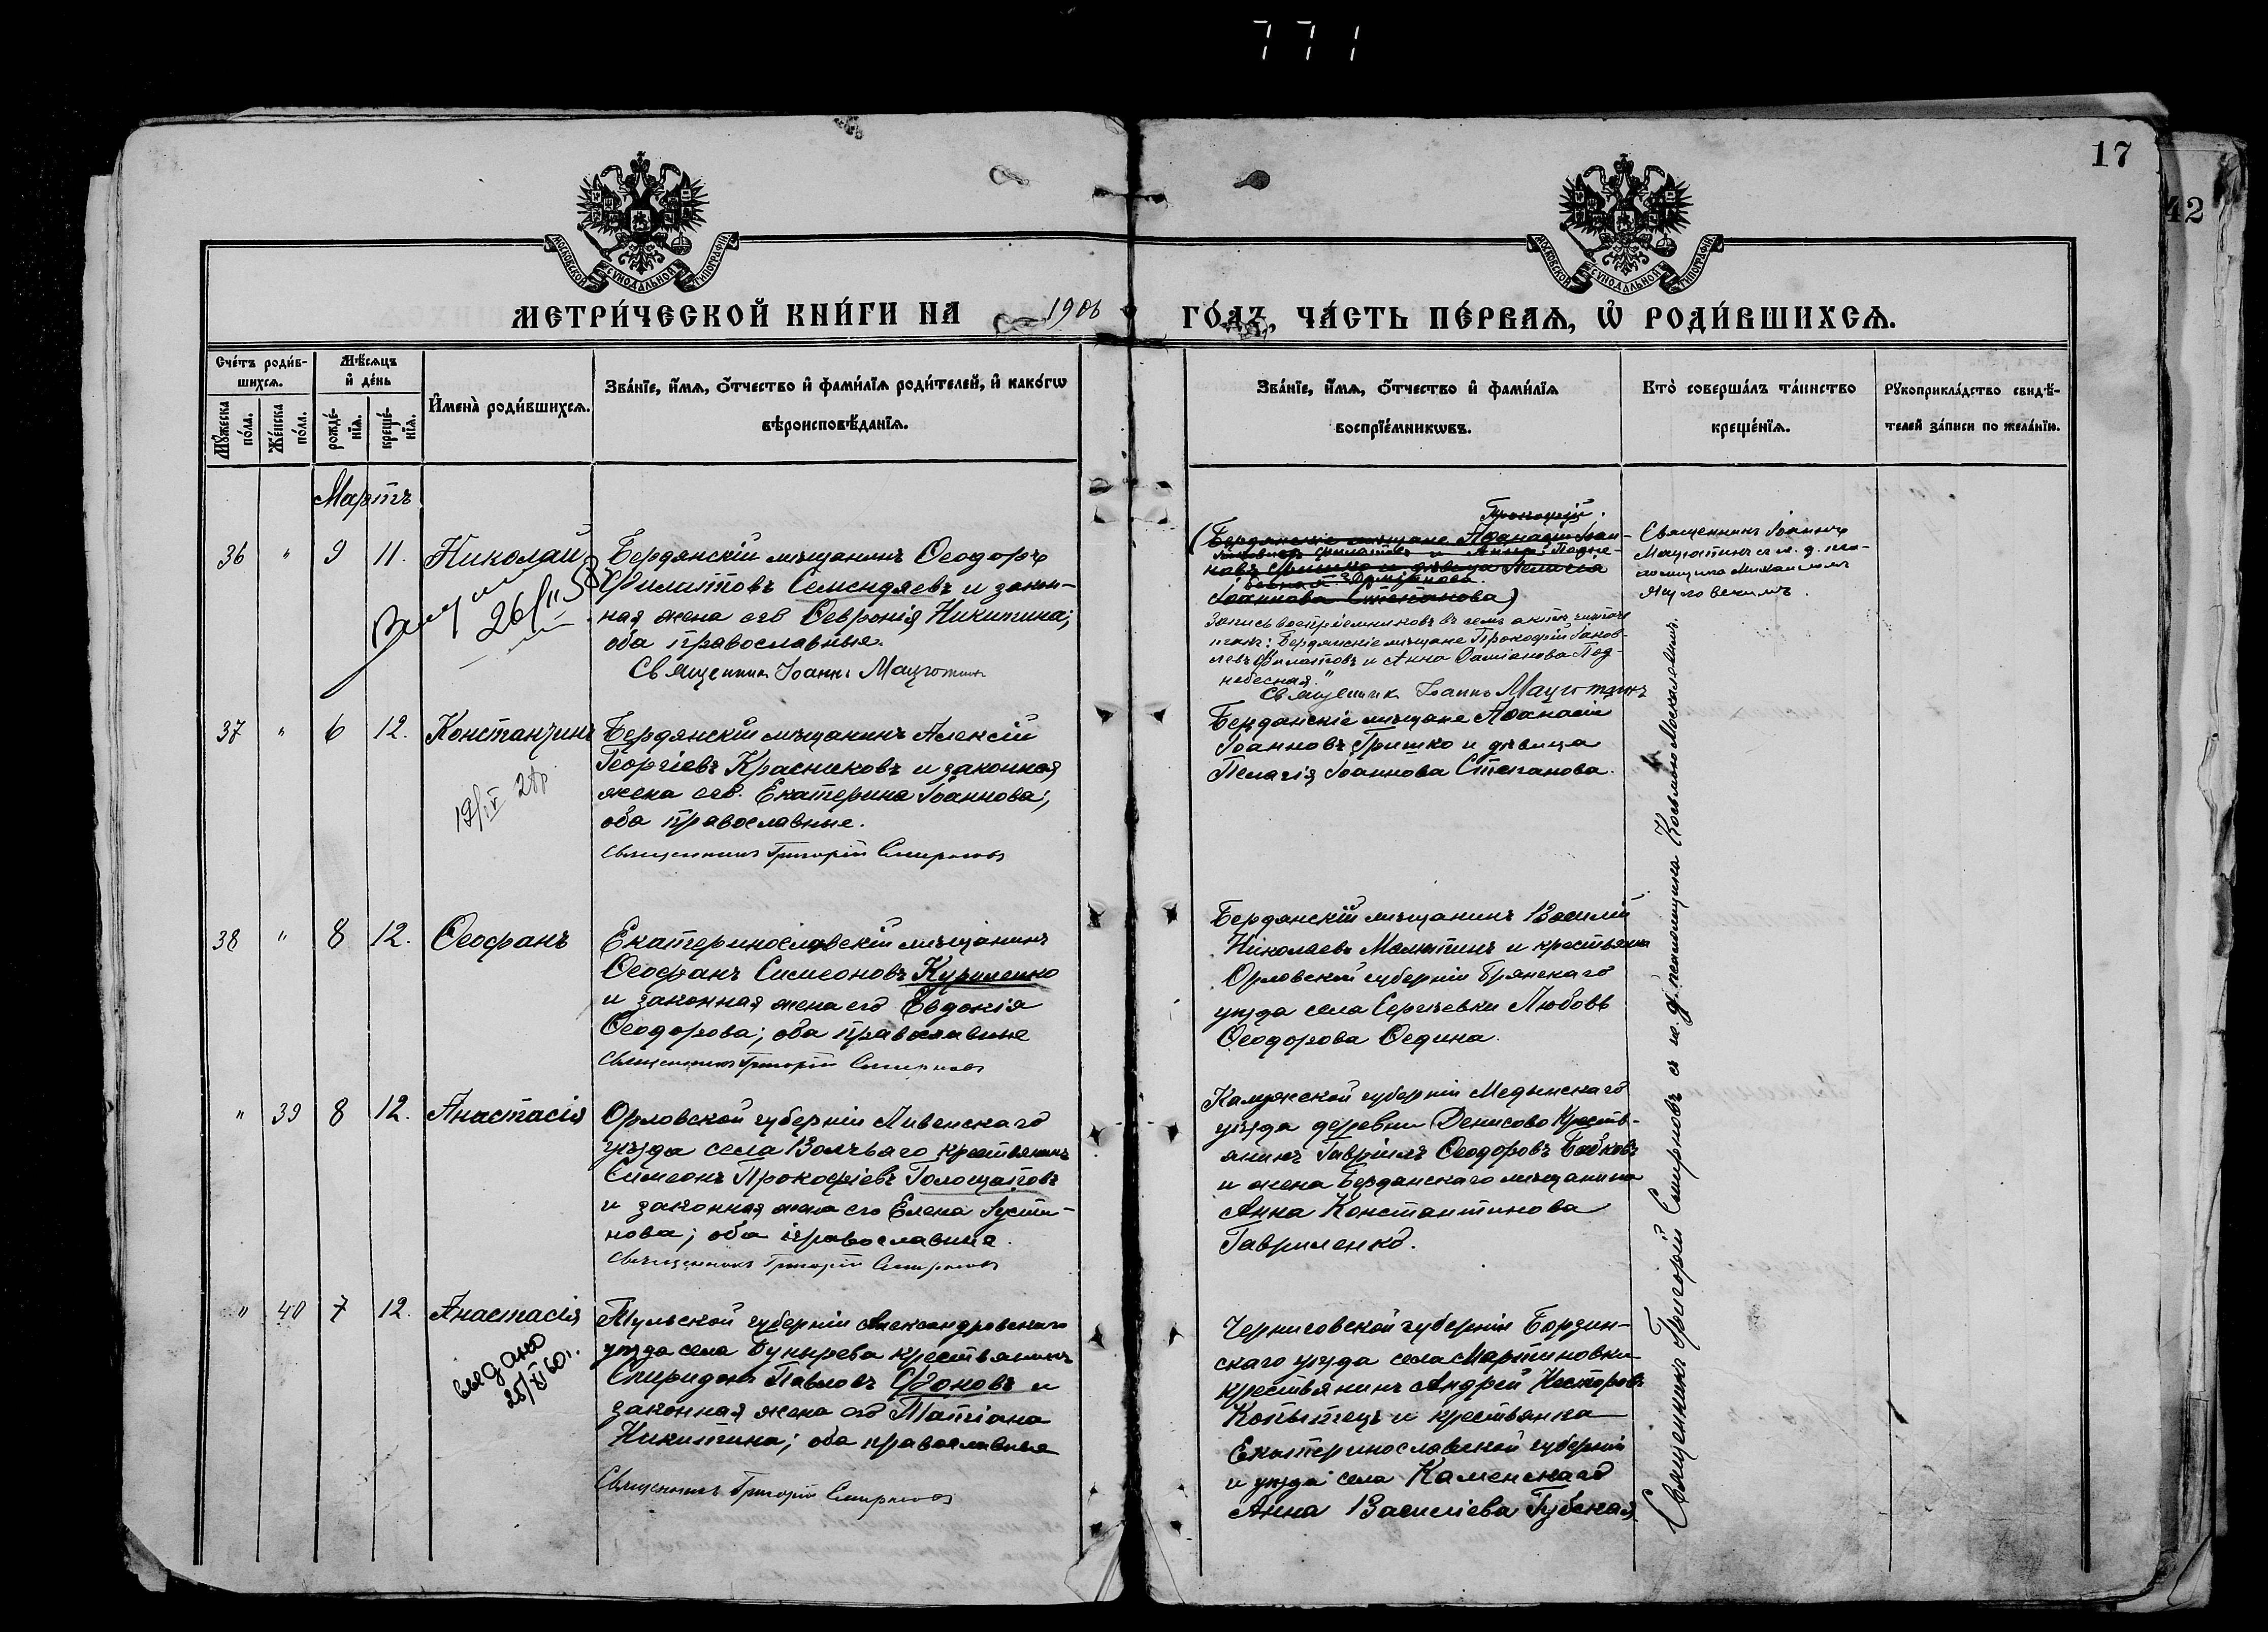 771
17
42
МОСКОВСКОЙ СѴНОДАЛЬНОЙ ТИПОГРАФІИ
МОСКОВСКОЙ СѴНОДАЛЬНОЙ ТИПОГРАФІИ
МЕТРИ́ЧЕСКОЙ КНИ́ГИ НА 1906 ГО́ДЪ, ЧА́СТЬ ПЕ́РВАѦ, Ѡ҆ РОДИ́ВШИХСѦ.
Сче́тъ роди́в-
шихсѧ.
Мꙋ́жеска по́ла.
Же́нска по́ла.
Мѣ́сѧцъ
и҆ де́нь
рожде́-
нїѧ.
креще́-
нїѧ.
И҆мена̀ роди́вшихсѧ.
Зва́нїе, и҆́мѧ, ѻ҆́тчество и҆ фами́лїѧ роди́телей, и҆ како́гѡ
вѣроисповѣ́данїѧ.
Зва́нїе, и҆́мѧ, ѻ҆́тчество и҆ фами́лїѧ
воспрїе́мникѡвъ.
Кто̀ соверша́лъ та́инство
креще́нїѧ.
Рꙋкоприкла́дство свидѣ́-
телей за́писи по жела́нїю.
Мартъ
36 " 9 11. Николай
26/II 58
Бердянскій мѣщанинъ Ѳеодоръ
Филатовъ Семендяевъ и закон-
ная жена его Ѳевронія Никитина;
оба православные.
Священникъ Іоаннъ Мацютинъ
Прокофій.
(Бердянскіе мѣщане Аѳанасій Іоан-
Іоаннова Степанова)
Запись воспріемниковъ въ семъ актѣ читать
такъ: "Бердянскіе мѣщане Прокофій Іаков-
левъ Филатовъ и Анна Даміанова Под-
небесная."
Священникъ Іоаннъ Мацютинъ
Священникъ Іоаннъ
Мацютинъ съ и. д. пса-
ломщика Михаиломъ
37 " 6 12. Константинъ
19/IV 28
Бердянскій мѣщанинъ Алексій
Георгіевъ Красниковъ и законная
жена его Екатерина Іоаннова;
оба православные.
Священникъ Григорій Смирновъ
Бердянскіе мѣщане Аѳанасій
Іоанновъ Гришко и дѣвица
Пелагія Іоаннова Степанова.
38 " 8 12. Ѳеофанъ
Екатеринославскій мѣщанинъ
Ѳеофанъ Симеоновъ Куриленко
и законная жена его Евдокія
Ѳеодорова; оба православные
Священникъ Григорій Смирновъ
Бердянскій мѣщанинъ Василій
Николаевъ Малютинъ и крестьянка
Орловской губерніи Брянскаго
уѣзда села Сергѣевки Любовь
Ѳеодорова Ѳедина.
" 39 8 12. Анастасія
Орловской губерніи Ливенскаго
уѣзда села Волчьяго крестьянинъ
Симеонъ Прокофіевъ Голощаповъ
и законная жена его Елена Іусти-
нова; оба православные.
Священникъ Григорій Смирновъ
Калужской губерніи Медынскаго
уѣзда деревни Денисово крестья-
янинъ Гавріилъ Ѳеодоровъ Бабковъ
и жена Бердянскаго мѣщанина
Анна Константинова
Гавриленко.
" 40 7 12. Анастасія
выдано
25/XI 60г.
Тульской губерніи Александровскаго
уѣзда села крестьянинъ
Спиридонъ Павловъ и
законная жена его Татіана
Никитина; оба православные
Священникъ Григорій Смирновъ
Черниговской губерніи Борзен-
скаго уѣзда села Мартиновки
крестьянинъ Андрей Несторовъ
Копытецъ и крестьянка
Екатеринославской губерніи
и уѣзда села Каменскаго
Анна Василіева Губская
Священникъ Григорій Смирновъ съ и. д. псаломщика Косьмою Москаловымъ.